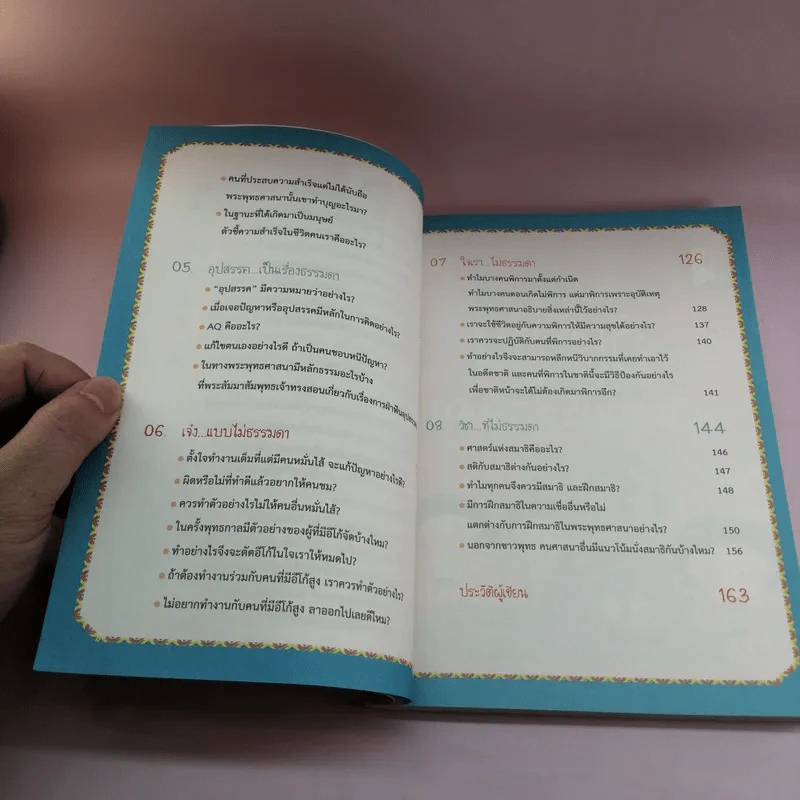 • คนที่ประสบความสำเร็จแต่ไม่ได้นับถือ
พระพุทธศาสนานั้นเขาทำบุญอะไรมา?
• ในฐานะที่ได้เกิดมาเป็นมนุษย์
ตัวชี้ความสำเร็จในชีวิตคนเราคืออะไร?
05. อุปสรรค...เป็นเรื่องธรรมดา
• "อุปสรรค" มีความหมายว่าอย่างไร?
• เมื่อเจอปัญหาหรืออุปสรรคมีหลักในการคิดอย่างไร?
• AQ คืออะไร?
• แก้ไขตนเองอย่างไรดี ถ้าเป็นคนชอบหนีปัญหา?
• ในทางพระพุทธศาสนามีหลักธรรมอะไรบ้าง
ที่พระสัมมาสัมพุทธเจ้าทรงสอนเกี่ยวกับเรื่องการฝ่าฟัน
06. เจ๋ง...แบบไม่ธรรมดา
• ตั้งใจทำงานเต็มที่แต่มีคนหมั่นไส้ จะแก้ปัญหาอย่างไรดี?
• ผิดหรือไม่ที่ทำดีแล้วอยากให้คนชม?
• ควรทำตัวอย่างไรไม่ให้คนอื่นหมั่นไส้?
• ในครั้งพุทธกาลมีตัวอย่างของผู้ที่มีอีโก้จัดบ้างไหม?
• ทำอย่างไรจึงจะตัดอีโก้ในใจเราให้หมดไป?
• ถ้าต้องทำงานร่วมกับคนที่มีอีโก้สูง เราควรทำตัวอย่างไร?
• ไม่อยากทำงานกับคนที่มีอีโก้สูง ลาออกไปเลยดีไหม?
07 ใจเรา...ไม่ธรรมดา 126
• ทำไมบางคนพิการมาตั้งแต่กำเนิด
ทำไมบางคนตอนเกิดไม่พิการ แต่มาพิการเพราะอุบัติเหตุ
พระพุทธศาสนาอธิบายสิ่งเหล่านี้ไว้อย่างไร? 128
• เราจะใช้ชีวิตอยู่กับความพิการให้มีความสุขได้อย่างไร? 137
• เราควรจะปฏิบัติกับคนที่พิการอย่างไร? 140
• ทำอย่างไรจึงจะสามารถหลีกหนีวิบากกรรมที่เคยทำเอาไว้
ในอดีตชาติ และคนที่พิการในชาตินี้จะมีวิธีป้องกันอย่างไร
เพื่อชาติหน้าจะได้ไม่ต้องเกิดมาพิการอีก? 141
08. วิชา...ที่ไม่ธรรมดา 144
• ศาสตร์แห่งสมาธิคืออะไร? 146
• สติกับสมาธิต่างกันอย่างไร? 147
• ทำไมทุกคนจึงควรมีสมาธิ และฝึกสมาธิ? 148
• มีการฝึกสมาธิในความเชื่ออื่นหรือไม่
แตกต่างกับการฝึกสมาธิในพระพุทธศาสนาอย่างไร? 150
• นอกจากชาวพุทธ คนศาสนาอื่นมีแนวโน้มนั่งสมาธิกันบ้างไหม? 156
ประวัติผู้เขียน 163